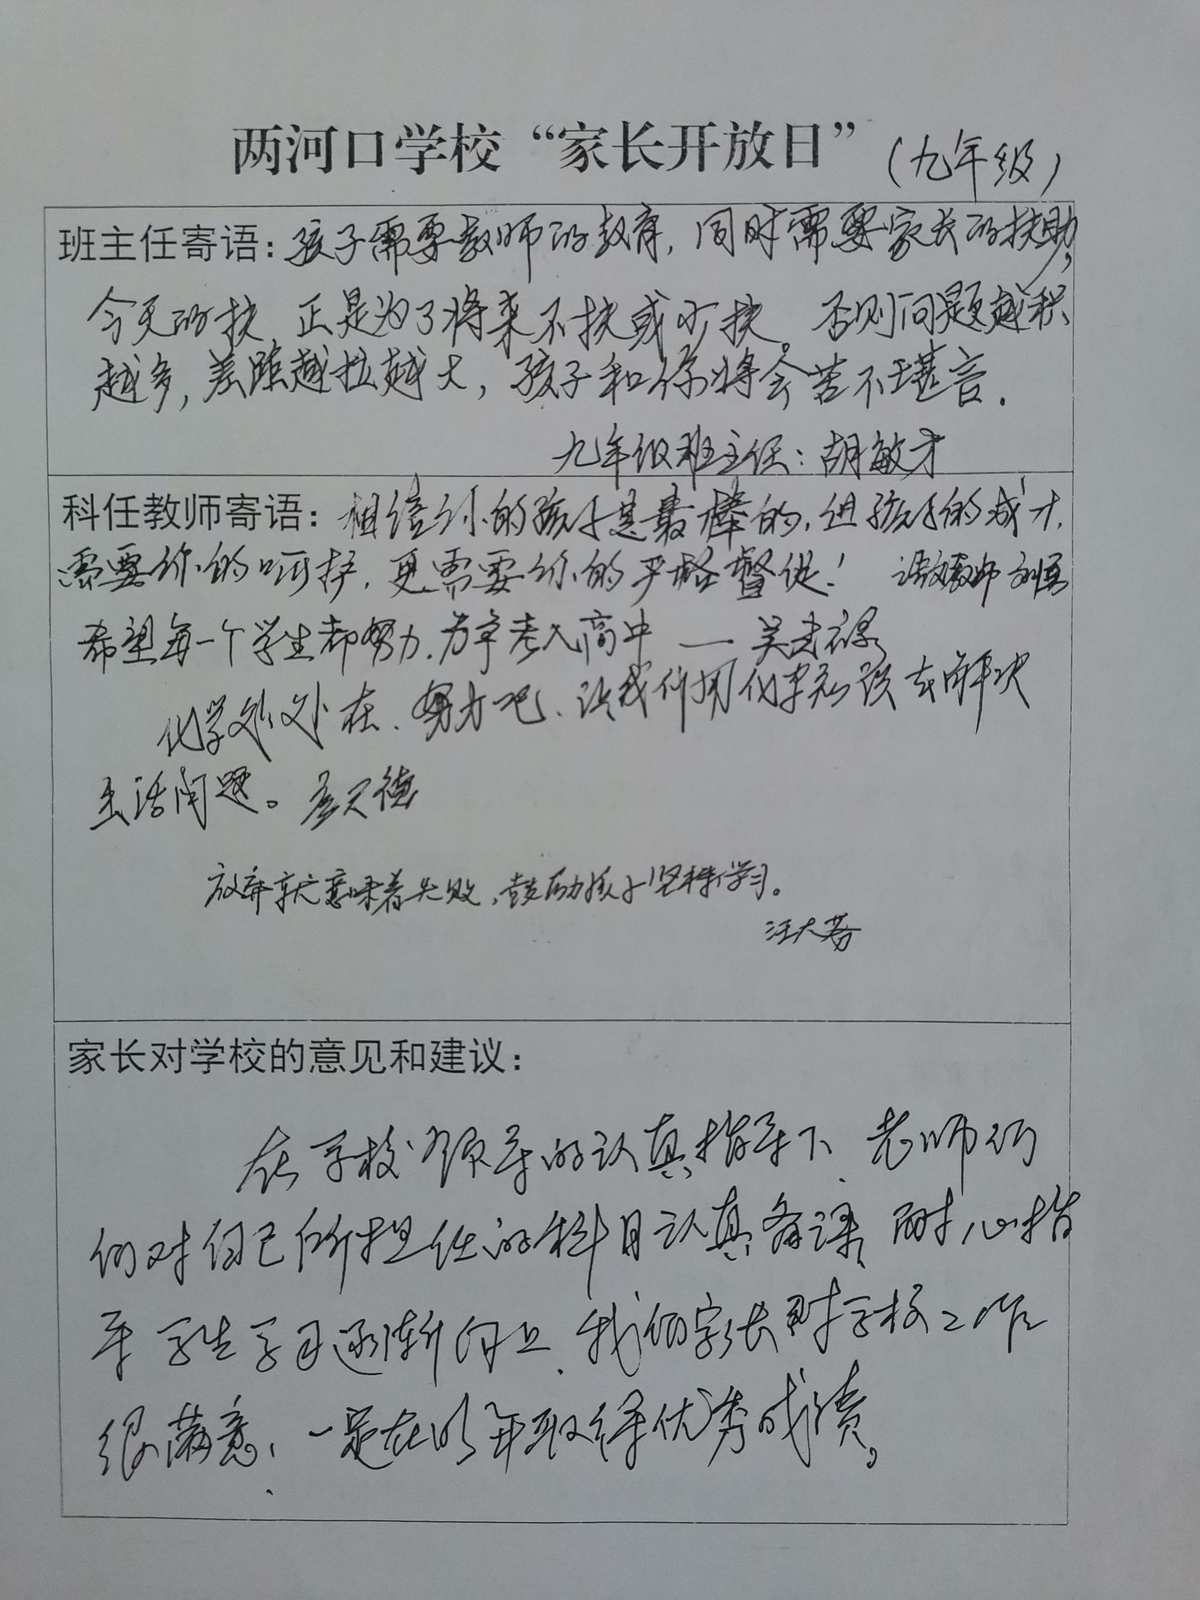 两河口学校“家长开放日”（九年级）
班主任寄语：孩子需要教师的教育，同时需要家长的扶助，
今天的扶，正是为了将来不扶或少扶。否则问题越积
越多，差距越拉越大，孩子和你将会苦不堪言．
九年级班主任：胡敏才
科任教师寄语：相信你的孩子是最棒的，但孩子的成才，
需要你的呵护，更需要你的严格督促！ 语文教师
希望每一个学生都努力，力争考入高中 —吴
化学处处在、努力吧、让我们用化学知识去解决
生活问题。
放弃就意味着失败，鼓励孩子坚持学习。
汪大芬
家长对学校的意见和建议：
在学校领导的认真指导下、老师们
们对自己所担任的科目认真备课、耐心指
导学生学习逐渐向上、我们家长对学校工作
很满意、一定在明年取得优秀成绩。